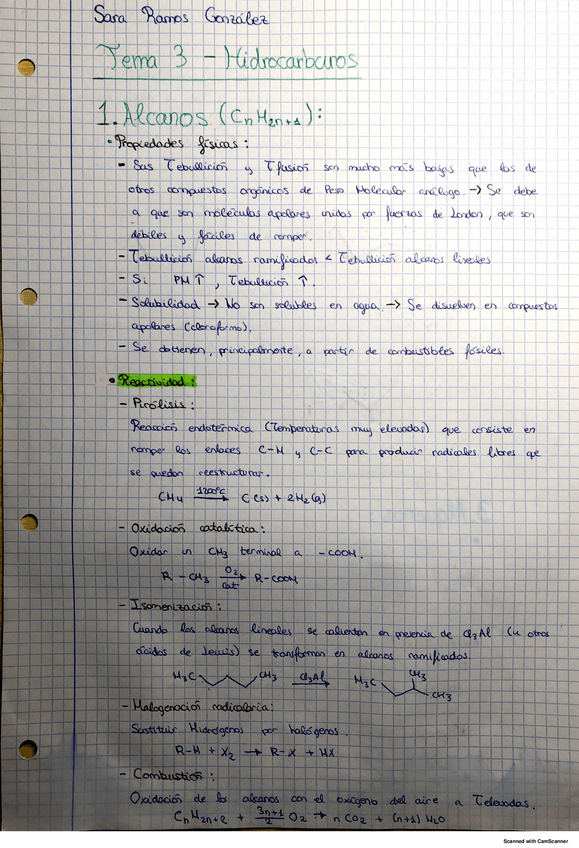 Sara Ramos González
Tema 3 - Hidrocarburos
1. Alcanos (CnH2n+1):
• Propiedades físicas:
- Sus Tebullición y Tfusión son mucho más bajas que las de
otros compuestos orgánicos de Peso Molecular análogo. → Se debe
a que son moléculas apolares unidas por fuerzas de London, que son
débiles y fáciles de romper.
- Tebullición alcanos ramificados < Tebullición alcanos lineales
- Si PM ↑, Tebullición ↑.
- Solubilidad → No son solubles en agua. → Se disuelven en compuestos
apolares (cloroformo).
- Se obtienen, principalmente, a partir de combustibles fósiles.
• Reactividad:
- Pirólisis:
Reacción endotérmica (Temperaturas muy elevadas) que consiste en
romper los enlaces C-H y C-C para producir radicales libres que
se puedan reestructurar.
CH4 1200ºC→ C(s) + 2H2(g)
- Oxidación catalítica:
Oxidar un CH3 terminal a -COOH.
R-CH3 O2 cat→ R-COOH
- Isomerización:
Cuando los alcanos lineales se calientan en presencia de Cl3Al (u otros
ácidos de Lewis) se transforman en alcanos ramificados.
H3C CH3 Cl3Al→ H3C CH3 CH3
- Halogenación radicalaria:
Sustituir Hidrógenos por halógenos.
R-H + X2 → R-X + HX
- Combustión:
Oxidación de los alcanos con el oxígeno del aire a Televadas.
CnH2n+2 + 3n+1/2 O2 → nCO2 + (n+1)H2O
Scanned with CamScanner